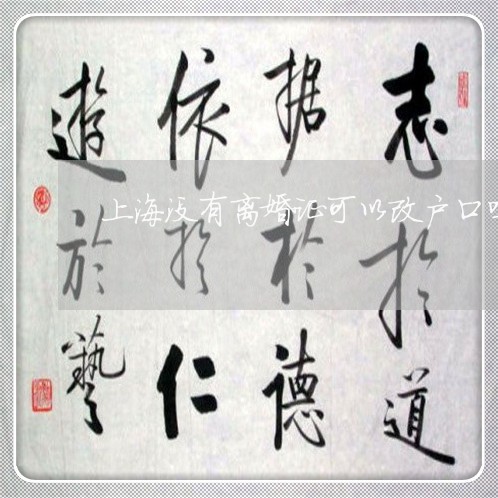 志於道
据於德
依於仁
遊於藝
上海没有离婚证可以改户口